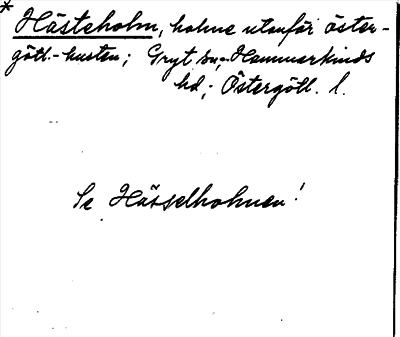 * Hästeholm, holme utanför öster-
götl.-kusten; Gryt sn; Hammarkinds
hd; Östergötl. l.
Se Hässelholmen!